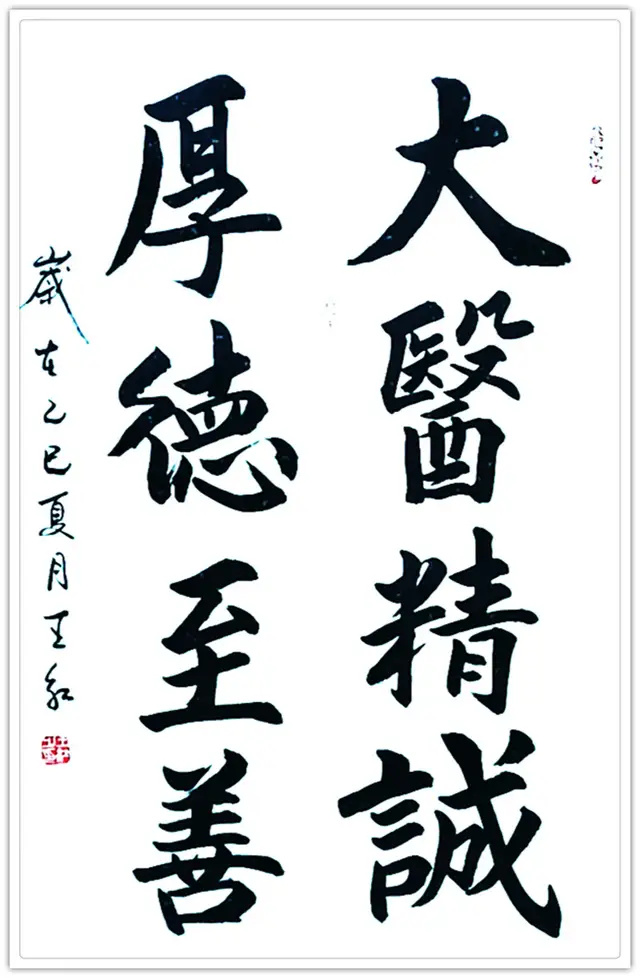 大醫精誠
厚德至善
歲在乙巳夏月王紅